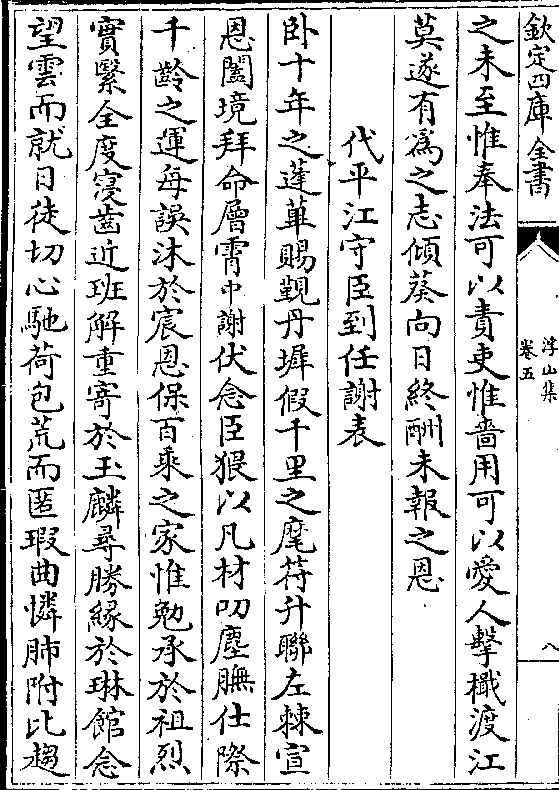 欽定四庫全書
浮山集
卷五
八
之未至惟奉法可以責吏惟嗇用可以愛人擊檝渡江
莫遂有為之志傾葵向日終酬未報之恩
代平江守臣到任謝表
卧十年之蓬蓽賜覲丹墀假千里之麾符升聯左棘宣
恩闔境拜命層霄中謝伏念臣猥以凡材叨塵膴仕際
千齡之運每誤沐於宸恩保百乘之家惟勉承於祖烈
實緊全度寖齒近班解重寄於玉麟尋勝緣於琳館念
望雲而就日徒切心馳荷包荒而匿瑕曲憐肺附比趨